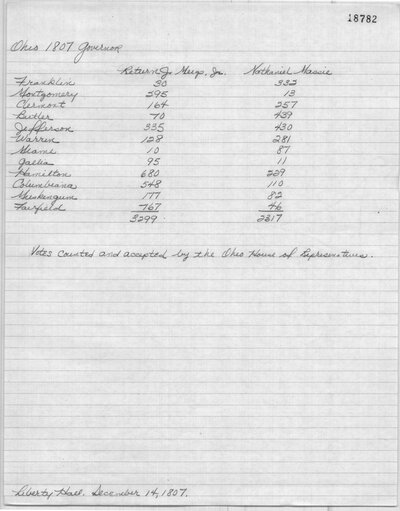 18782
Ohio 1807 Governor
Return J. Meigs, Jr. Nathaniel Massie
Franklin 30 332
Montgomery 295 13
Clermont 164 257
Butler 70 439
Jefferson 335 430
Warren 128 281
Miami 10 87
Gallia 95 11
Hamilton 680 229
Columbiana 548 110
Muskingum 177 82
Fairfield 767 46
3299 2317
Votes counted and accepted by the Ohio House of Representatives.
Liberty Hall. December 14, 1807.